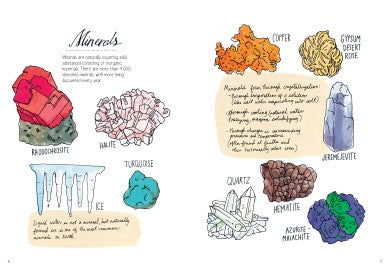 Minerals
Minerals are naturally occurring solid
substances consisting of inorganic
materials. There are more than 4,000
identified minerals, with more being
discovered every year.
RHODOCHROSITE
HALITE
TURQUOISE
ICE
Liquid water is not a mineral, but naturally
formed ice is one of the most common
minerals on Earth.
COPPER
GYPSUM
DESERT
ROSE
Minerals form through crystallization:
through evaporation of a solution
(like salt water evaporating into salt)
through cooling
through changes in surrounding
pressure and temperature
JEREMEJEVITE
QUARTZ
HEMATITE
AZURITE
MALACHITE